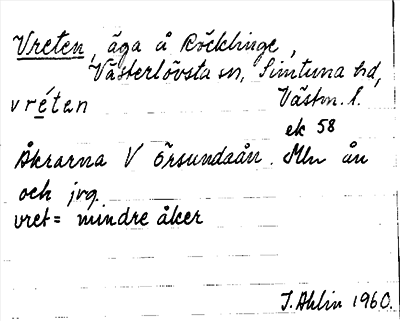 Vreten, äga å Röcklinge,
Västerlövsta sn, Simtuna hd,
vréten Västm. l.
ek 58
Åkrarna V Örsundaån. Mln ån
och jvg.
vret = mindre åker
J. Ahlin 1960.